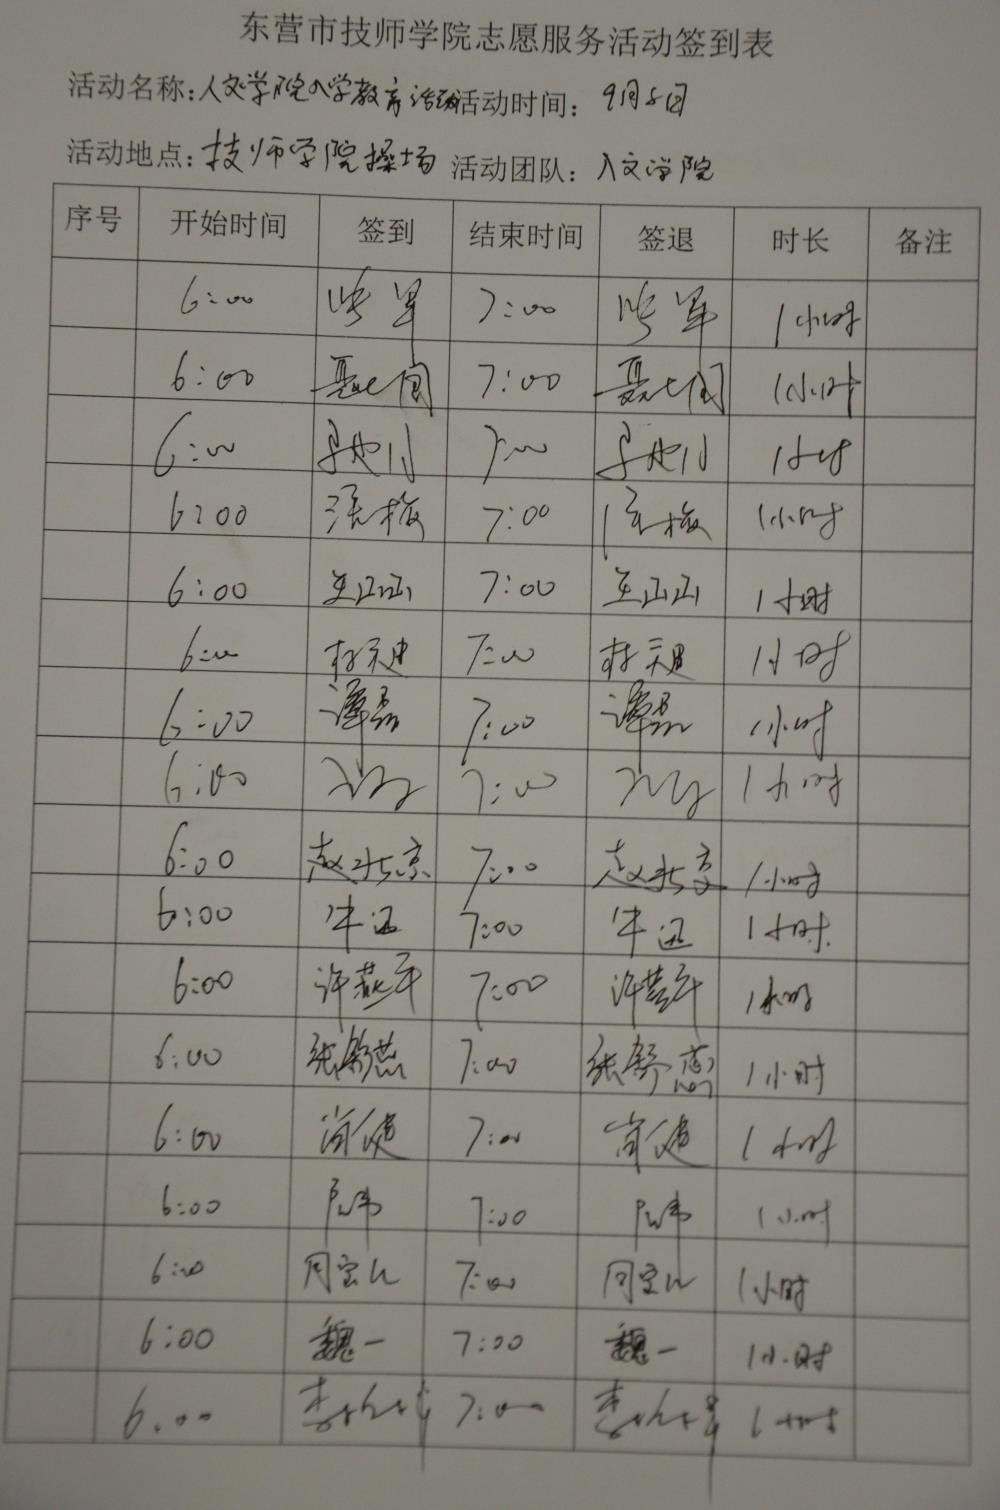 东营市技师学院志愿服务活动签到表
活动名称:人文学院入学教育活动 活动时间: 9月5日
活动地点: 技师学院操场 活动团队: 人文学院
序号 开始时间 签到 结束时间 签退 时长 备注
6:00 7:00 1小时
6:00 7:00 1小时
6:00 7:00 1小时
6:00 7:00 1小时
6:00 7:00 1小时
6:00 7:00 1小时
6:00 谭磊 7:00 谭磊 1小时
6:00 7:00 1小时
6:00 赵北京 7:00 赵北京 1小时
6:00 牛迅 7:00 牛迅 1小时
6:00 许燕平 7:00 许燕平 1小时
6:00 张舒燕 7:00 张舒燕 1小时
6:00 尚健 7:00 尚健 1小时
6:00 7:00 1小时
6:00 7:00 1小时
6:00 魏一 7:00 魏一 1小时
6:00 7:00 1小时